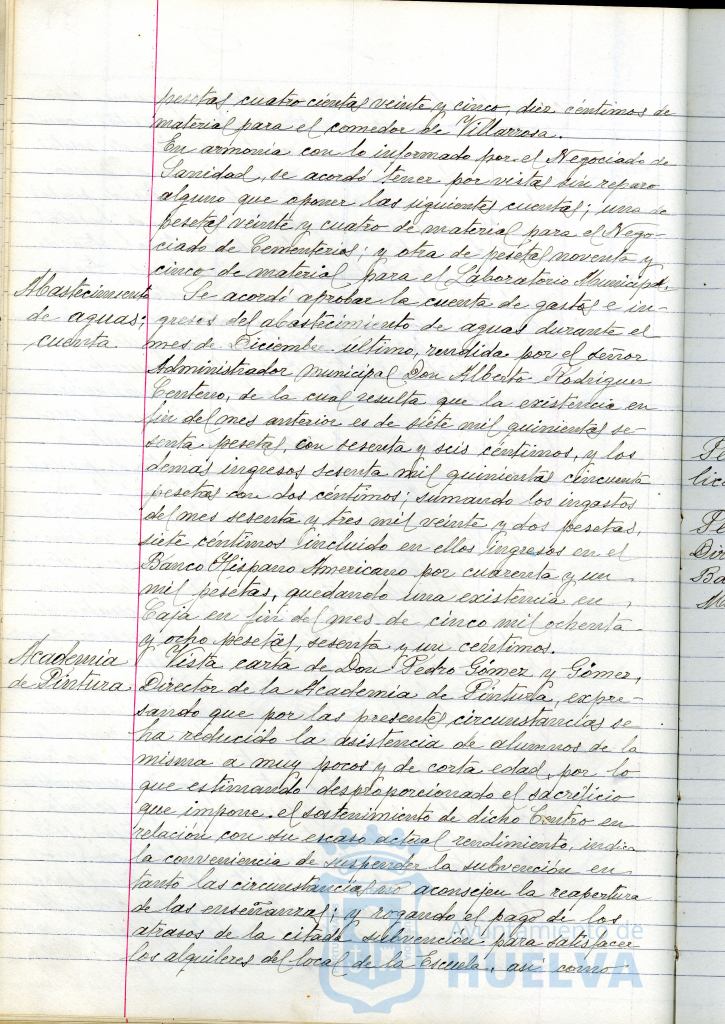 pesetas cuatrocientas veinte y cinco, diez céntimos de
material para el comedor de Villarrosa.
En armonía con lo informado por el Negociado de
Sanidad, se acordó tener por vistas sin reparo
alguno que oponer las siguientes cuentas; una de
pesetas veinte y cuatro de material para el Nego-
ciado de Cementerios; y otra de pesetas noventa y
cinco de material para el Laboratorio Municipal.
Abastecimiento
de aguas;
cuenta
Se acordó aprobar la cuenta de gastos e in-
gresos del abastecimiento de aguas durante el
mes de Diciembre último, rendida por el señor
Administrador municipal Don Alberto Rodríguez
Centeno, de la cual resulta que la existencia en
fin del mes anterior es de siete mil quinientas se-
senta pesetas, con sesenta y seis céntimos, y los
demás ingresos sesenta mil quinientas cincuenta
pesetas con dos céntimos; sumando los ingastos
del mes sesenta y tres mil veinte y dos pesetas,
siete céntimos incluido en ellos ingresos en el
Banco Hispano Americano por cuarenta y un
mil pesetas, quedando una existencia en
Caja en fin del mes de cinco mil ochenta
y ocho pesetas, sesenta y un céntimos.
Academia
de Pintura
Vista carta de Don Pedro Gómez y Gómez,
Director de la Academia de Pintura, expre-
sando que por las presentes circunstancias se
ha reducido la asistencia de alumnos de la
misma a muy pocos y de corta edad, por lo
que estimando desproporcionado el sacrificio
que impone el sostenimiento de dicho Centro en
relación con su escaso actual rendimiento, indica
la conveniencia de suspender la subvención en
tanto las circunstancias no aconsejen la reapertura
de las enseñanzas; y rogando el pago de los
atrasos de la citada subvención para satisfacer
los alquileres del local de la Escuela, así como
Ayuntamiento de
HUELVA